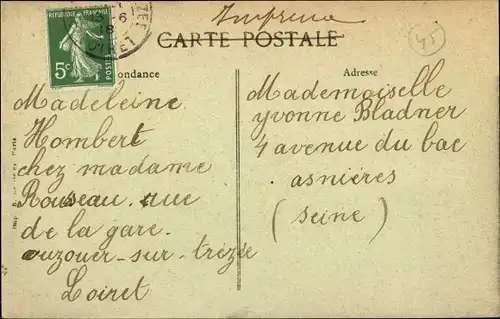 Imprimé
CARTE POSTALE
RÉPUBLIQUE FRANÇAISE
5c
POSTES
ondance
Adresse
45
Madeleine
Hombert
chez madame
Rousseau. rue
de la gare.
ouzouer-sur-trézée
Loiret
Mademoiselle
yvonne Bladner
4 avenue du bac
asnières
(seine)